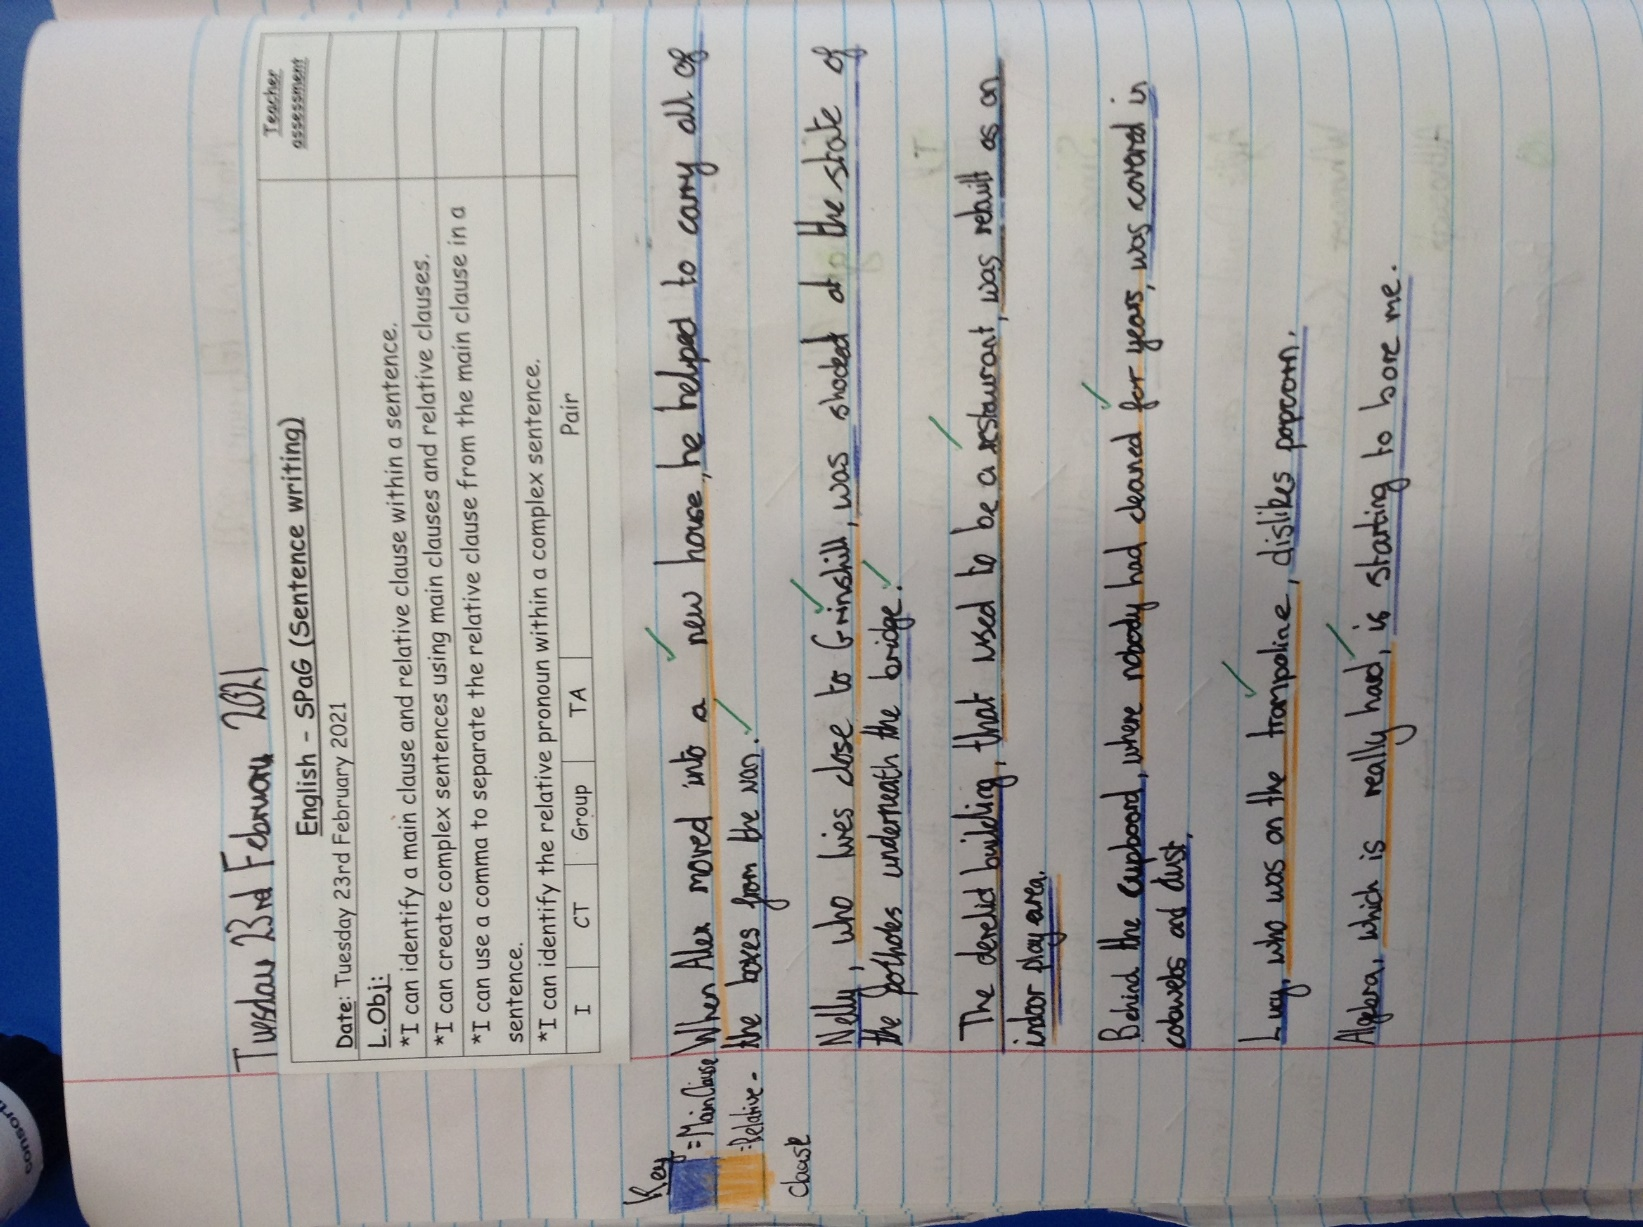 Tuesday 23rd February 2021
English - SPaG (Sentence writing)
Teacher assessment
Date: Tuesday 23rd February 2021
L.Obj:
*I can identify a main clause and relative clause within a sentence.
*I can create complex sentences using main clauses and relative clauses.
*I can use a comma to separate the relative clause from the main clause in a
sentence.
*I can identify the relative pronoun within a complex sentence.
I CT Group TA Pair
Key
=Main Clause
-Relative-
clause
When Alex moved into a new house, he helped to carry all of
the boxes from the van.
Nelly, who lives close to Grinshill, was shocked at the state of
the potholes underneath the bridge.
The derelict building, that used to be a restaurant, was rebuilt as an
indoor play area.
Behind the cupboard, where nobody had cleaned for years, was covered in
cobwebs and dust.
Lucy, who was on the trampoline, dislikes popcorn.
Algebra, which is really hard, is starting to bore me.